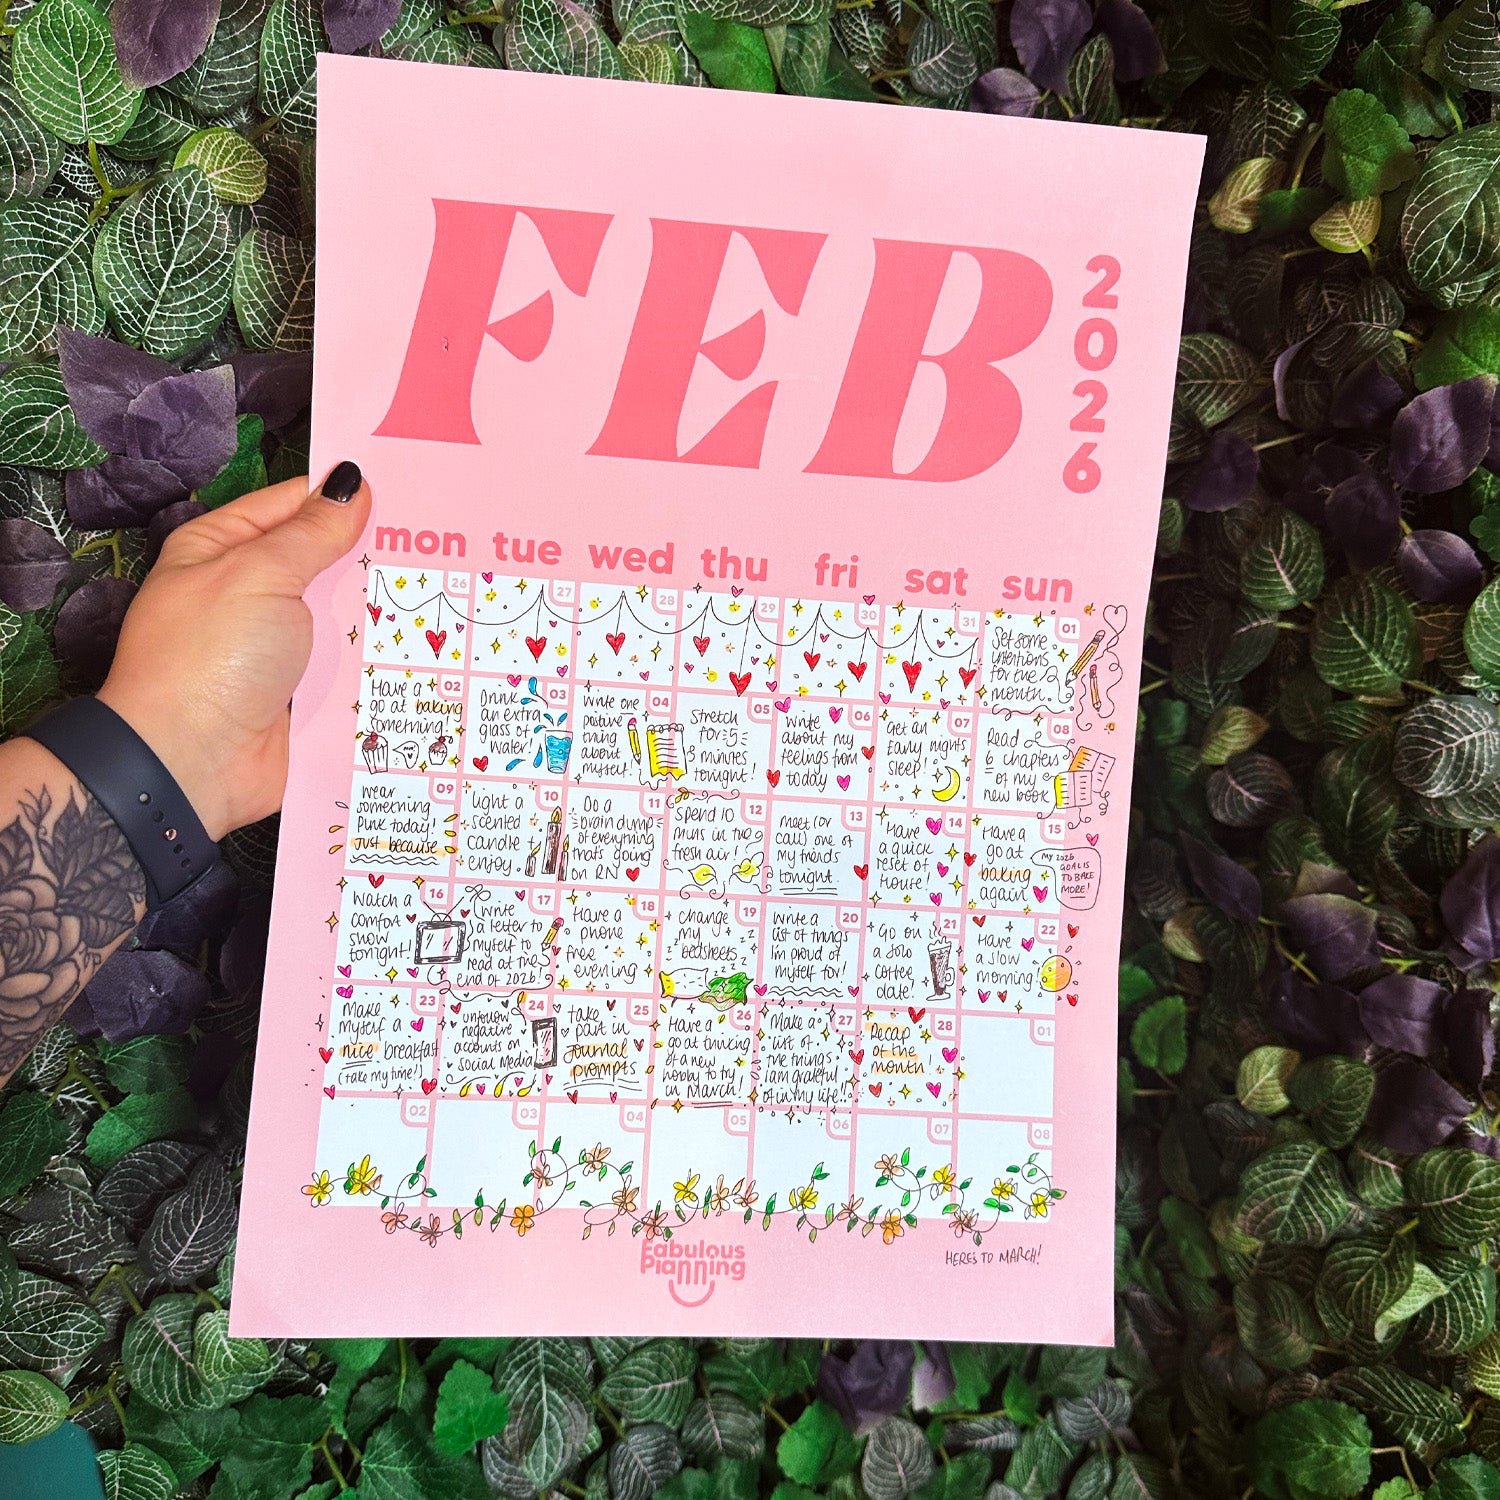 FEB
2026
mon tue wed thu fri sat sun
26
27
28
29
30
31
01
Set some
intentions
for the
month.
02
Have a
go at baking
something!
03
Drink
an extra
glass of
water!
04
Write one
positive
thing
about
myself!
05
Stretch
for 5
minutes
tonight!
06
Write
about my
feelings from
today
07
Get an
Early nights
sleep!
08
Read
6 chapters
of my
new book
09
Wear
something
Pink today!
Just because
10
Light a
scented
candle +
enjoy.
11
Do a
brain dump
of everything
thats going
on RN
12
Spend 10
mins in the
fresh air!
13
Meet (or
call) one of
my friends
tonight.
14
Have
a quick
reset of
House!
15
Have a
go at
baking
again
MY 2026
GOAL IS
TO BAKE
MORE!
16
Watch a
comfort
show
tonight!
17
Write
a letter to
myself to
read at the
end of 2026!
18
Have a
phone
free
evening
19
Change
my
bedsheets
z z z
20
Write a
list of things
I'm proud of
myself for!
21
Go on
a solo
coffee
date!
22
Have
a slow
morning!
23
Make
myself a
nice breakfast
(take my time!)
24
Unfollow
negative
accounts on
Social Media
25
Take
part in
Journal
prompts
26
Have a
go at thinking
of a new
hobby to try
in March!
27
Make a
list of
the things
I am grateful
of in my life!!
28
Recap
of the
month!
01
02
03
04
05
06
07
08
Fabulous
Planning
HERE'S TO MARCH!